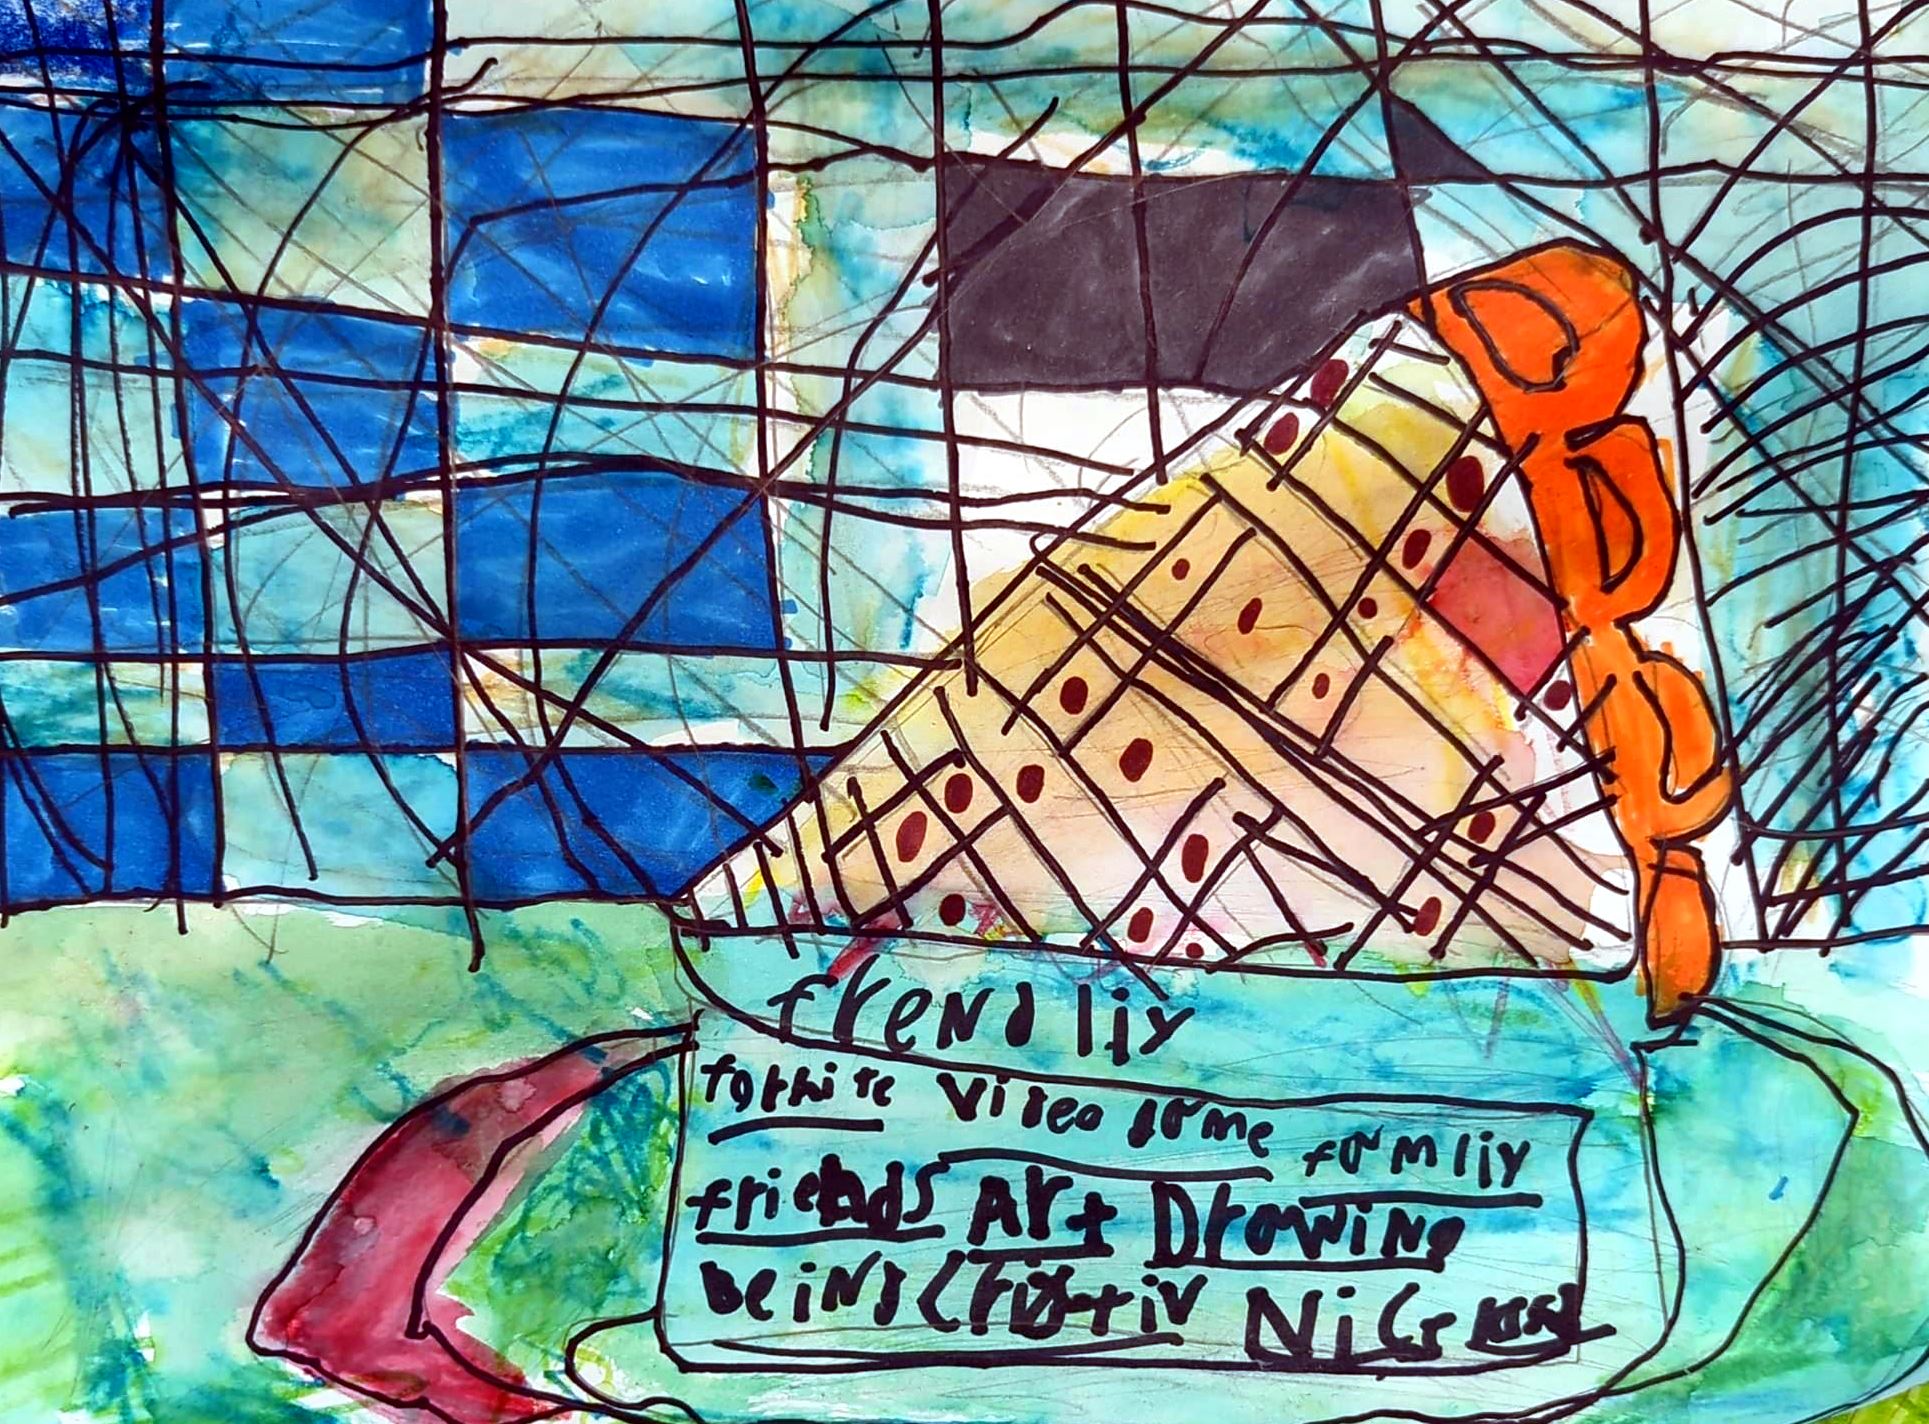 frendliy
fortnite video game famliy
friends Art Drawing
being